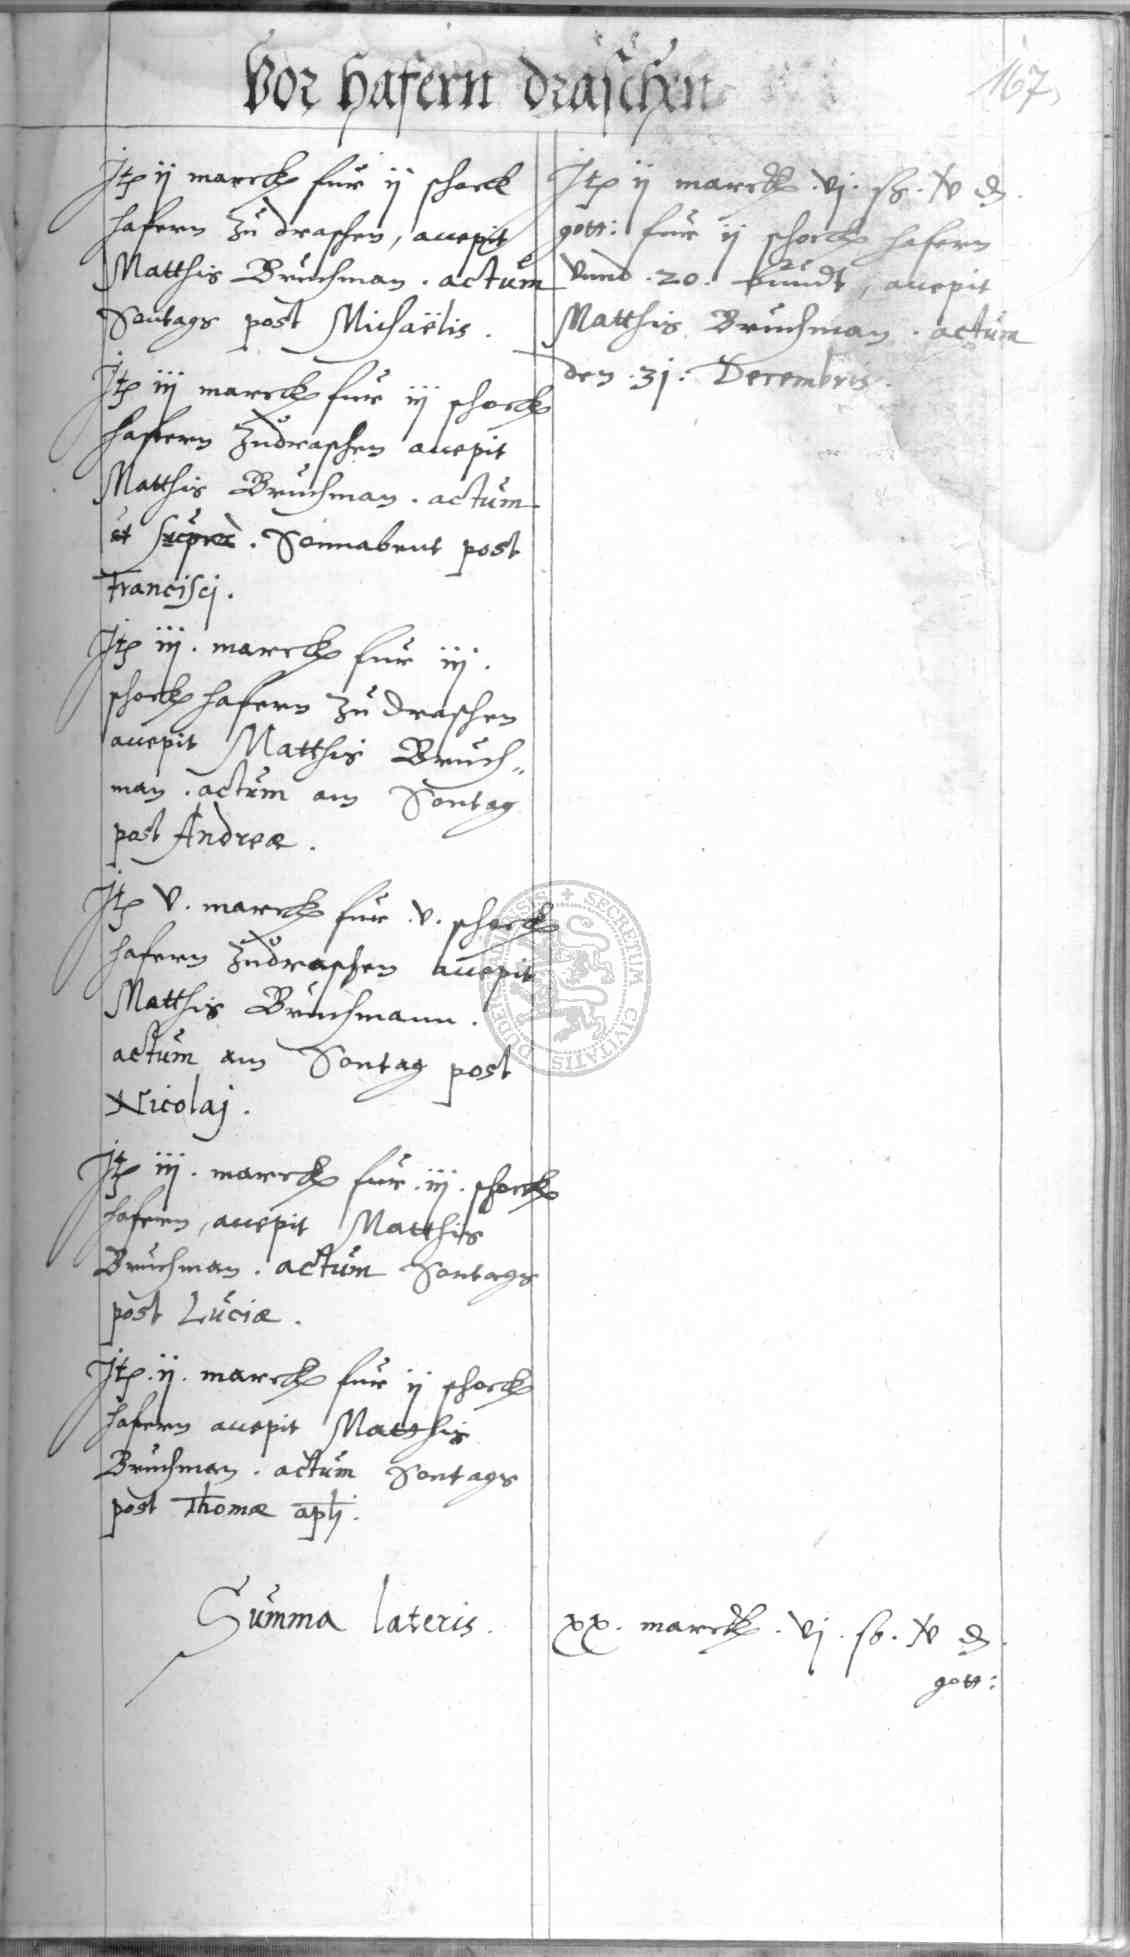 Vor hafern draschen
167
Jtꝫ ij marck fur ij schock
hafern zu draschen, accepit
Matthis Bruchman . actum
Sontags post Michaëlis .
Jtꝫ iij marck fur iij schock
hafern zudraschen accepit
Matthis Bruchman . actum
ut supra . Sonnabent post
Francisci .
Jtꝫ iij . marck fur iij .
schock hafern zu draschen
accepit Matthis Bruch„
man . actum am Sontag
post Andreæ .
Jtꝫ v . marck fur . v . schock
hafern zudraschen accepit
Matthis Bruchmann .
actum am Sontag post
Nicolaj .
Jtꝫ iij . marck fur . iij . schock
hafern, accepit Matthis
Bruchman . actum Sontags
post Luciæ .
Jtꝫ . ij . marck fur ij schock
hafern accepit Matthis
Bruchman . actum Sontags
post Thomæ apli .
Jtꝫ ij marck . vj . ß . iv ₰ .
gott: fur ij schock hafern
vnnd . 20 . bundt, accepit
Matthis Bruchman . actum
den . 31 : Decembris .
Summa lateris .
xx . marck . vj . ß . iv ₰ .
gott:
SECRETUM CIVITATIS